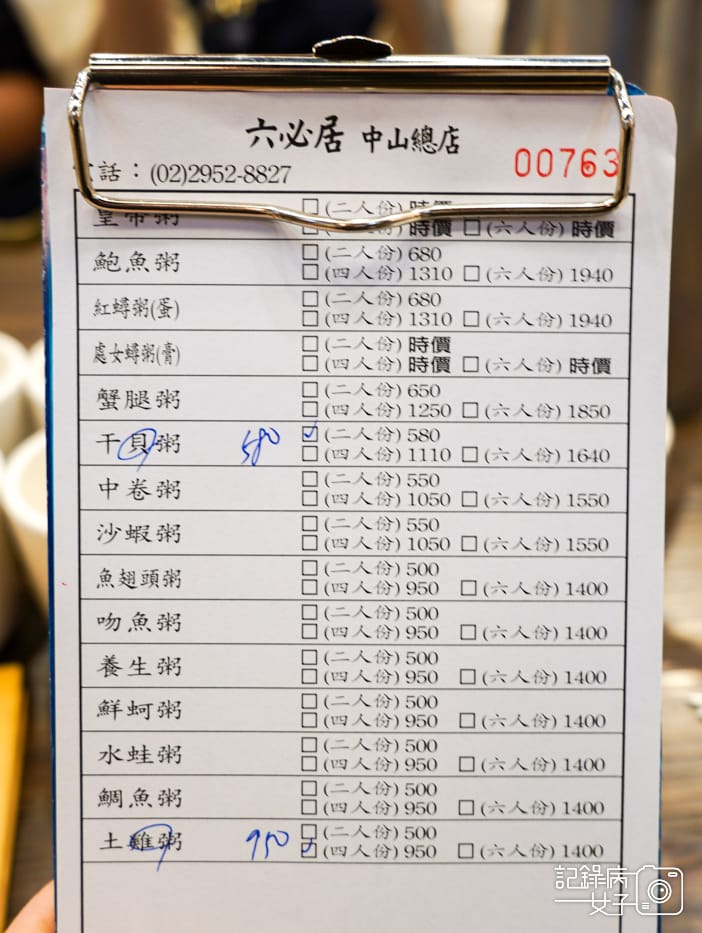 六必居 中山總店
話：(02)2952-8827 00763
皇帝粥 □ (二人份) 時價
時價 □ (六人份) 時價
鮑魚粥 □ (二人份) 680
□ (四人份) 1310 □ (六人份) 1940
紅蟳粥(蛋) □ (二人份) 680
□ (四人份) 1310 □ (六人份) 1940
處女蟳粥(膏) □ (二人份) 時價
□ (四人份) 時價 □ (六人份) 時價
蟹腿粥 □ (二人份) 650
□ (四人份) 1250 □ (六人份) 1850
干貝粥 580 ☑ (二人份) 580
□ (四人份) 1110 □ (六人份) 1640
中卷粥 □ (二人份) 550
□ (四人份) 1050 □ (六人份) 1550
沙蝦粥 □ (二人份) 550
□ (四人份) 1050 □ (六人份) 1550
魚翅頭粥 □ (二人份) 500
□ (四人份) 950 □ (六人份) 1400
吻魚粥 □ (二人份) 500
□ (四人份) 950 □ (六人份) 1400
養生粥 □ (二人份) 500
□ (四人份) 950 □ (六人份) 1400
鮮蚵粥 □ (二人份) 500
□ (四人份) 950 □ (六人份) 1400
水蛙粥 □ (二人份) 500
□ (四人份) 950 □ (六人份) 1400
鯛魚粥 □ (二人份) 500
□ (四人份) 950 □ (六人份) 1400
土雞粥 950 □ (二人份) 500
☑ (四人份) 950 □ (六人份) 1400
記錄病
女子